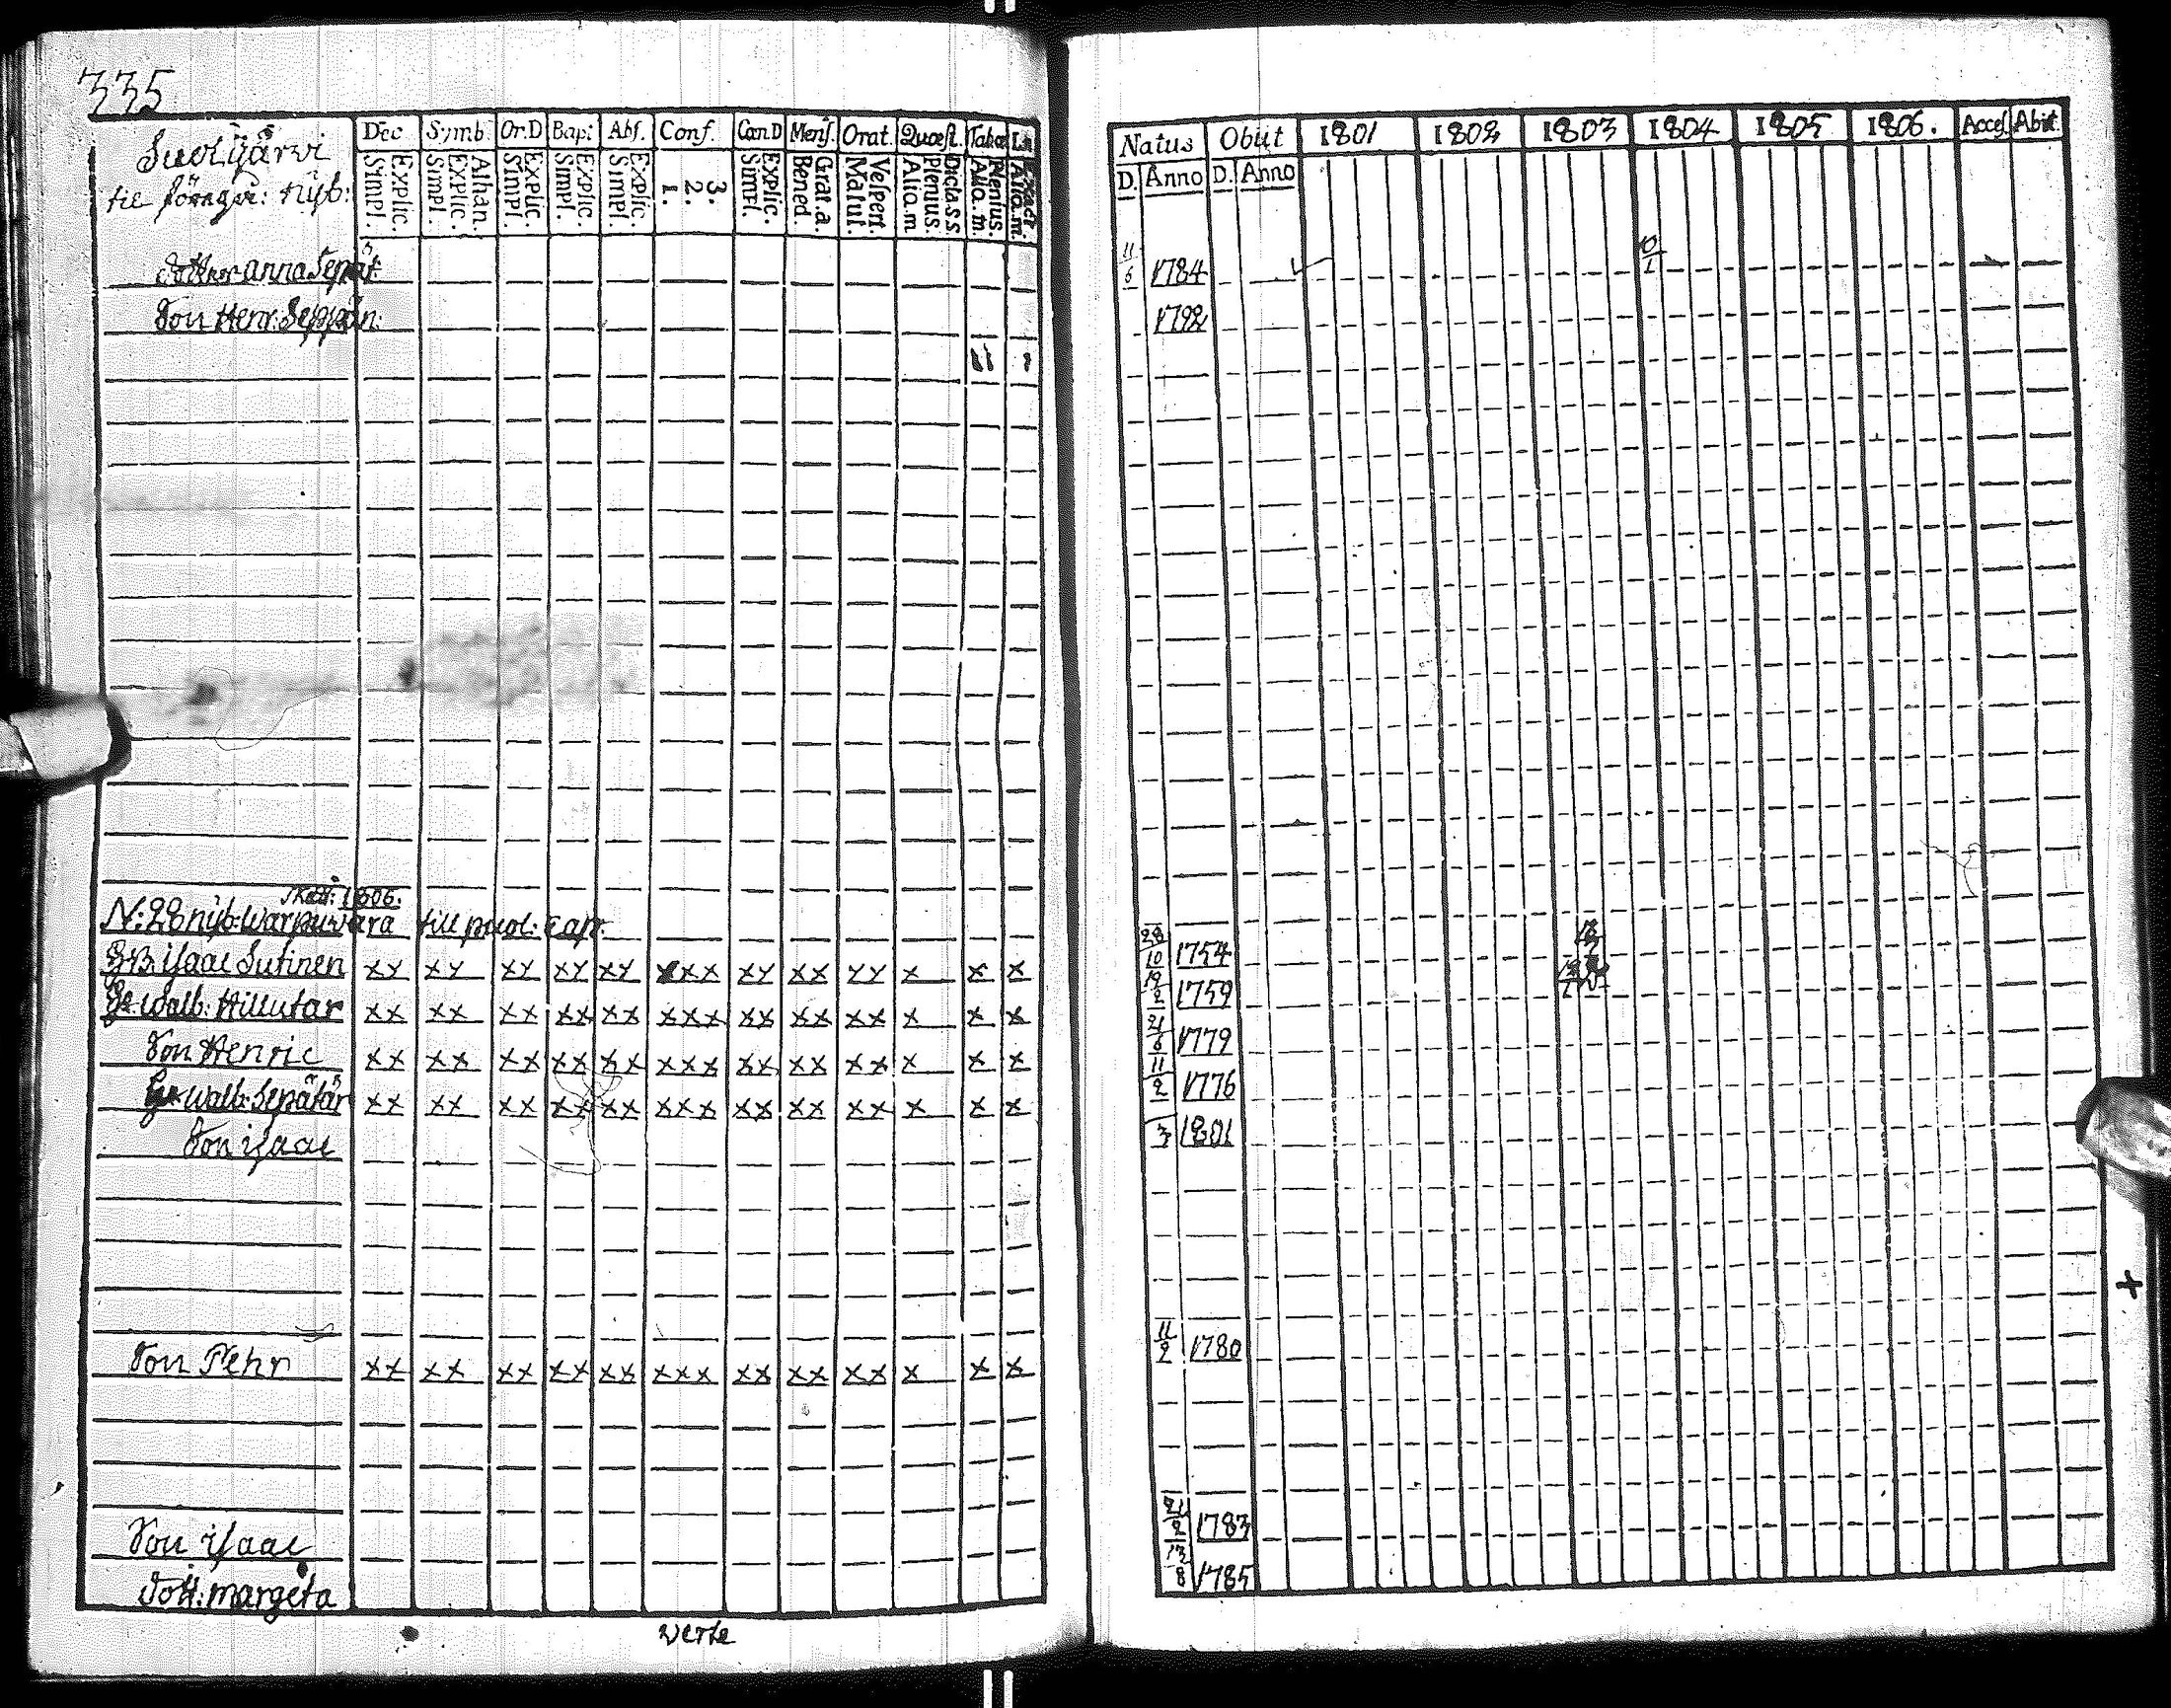 335
Suolijärvi
til föregå: nyb:
Dec Symb. Or.D Bap: Abs. Conf. Cœn.D Mens. Orat. Quæst. Tabæ
Explic. Simpl. Athan. Explic. Simpl. Explic. Simpl. Explic. Simpl. Explic. Simpl. 3. 2. 1. Explic. Simpl. Grat.a. Bened. Vespert. Matut. Dict.a S.S Plenius. Aliq.m Plenius. Aliq.m. Exact. Aliq.m.
Natus Obiit 1801 1802 1803 1804 1805 1806. Acces. Abiit.
D. Anno D. Anno
Dotter anna Sepät: 11/6 1784 10/1
Son Henr: Seppän: 1792
Skatt: 1806.
N: 28 nyb: Warpuwara till puol: Capr.
Isaac Sutinen xx xx xx xx xx xxx xx xx xx x x x 28/10 1754
Walb: Hillutar xx xx xx xx xx xxx xx xx xx x x x 19/2 1759
Son Henric xx xx xx xx xx xxx xx xx xx x x x 21/6 1779
Walb: Sepätär xx xx xx xx xx xxx xx xx xx x x x 11/2 1776
Son isaac 3 1801
Son Pehr xx xx xx xx xx xxx xx xx xx x x x 11/2 1780
Son isaac 21/2 1783
Dott: margeta 13/8 1785
verte